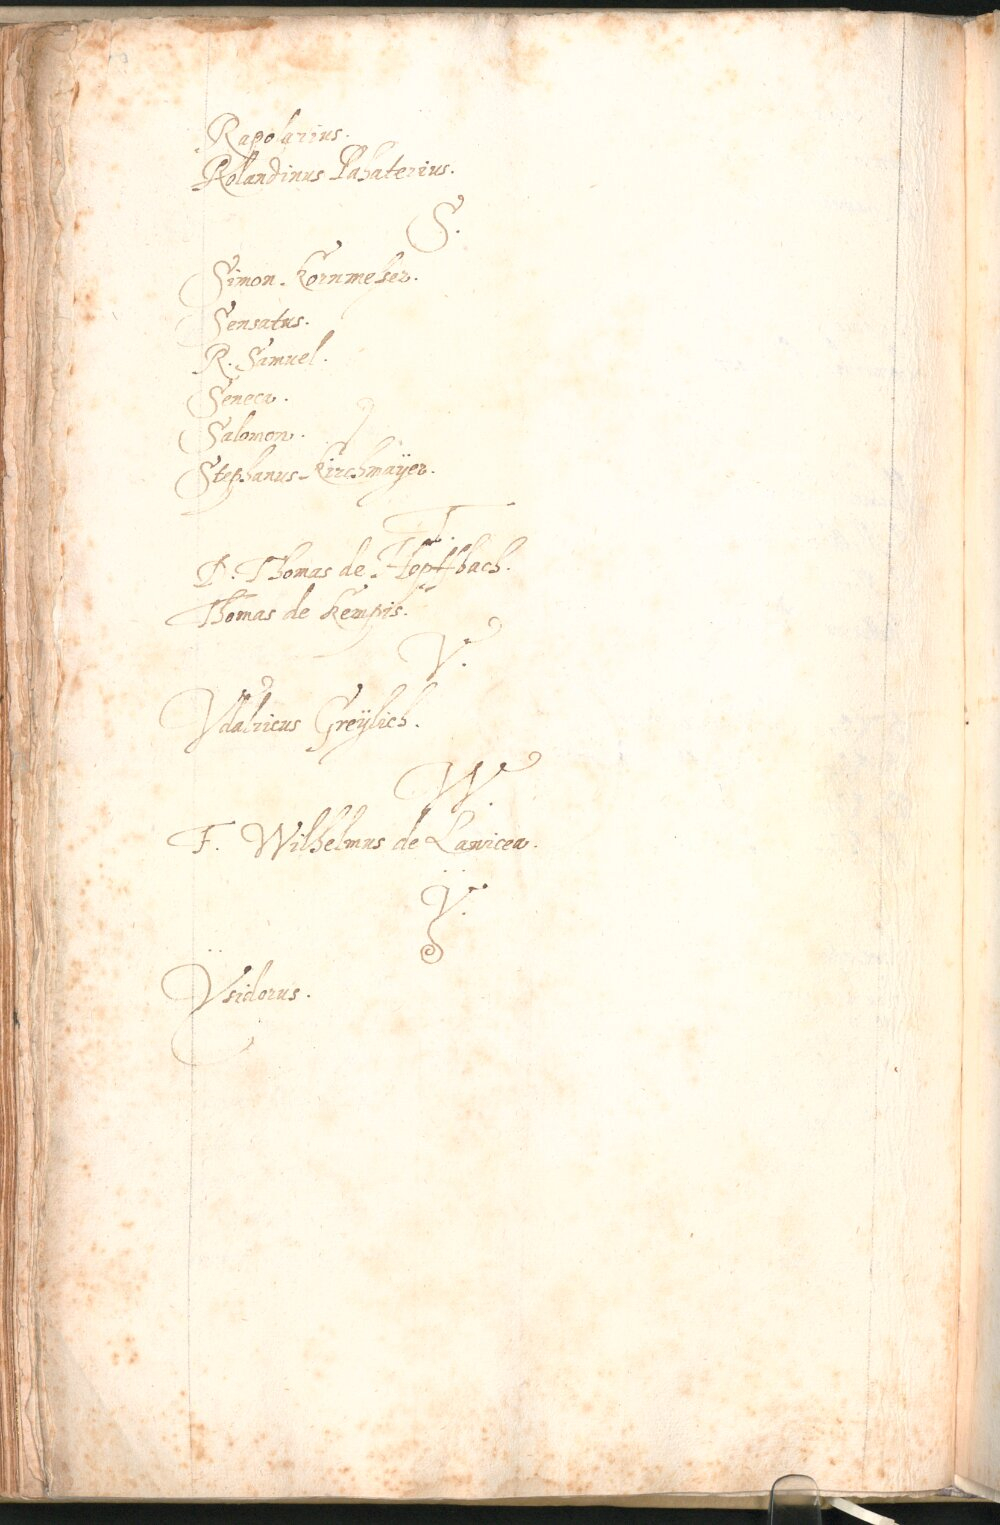 Rapolarius.
Rolandinus Pahaterius.
S.
Simon. Kornmeßer.
Sensatus.
R. Samuel.
Seneca.
Salomon.
Stephanus Kirchmaÿer.
T.
D. Thomas de Hopffbach.
Thomas de Kempis.
V.
Vdalricus Greÿlich.
W.
F. Wilhelmus de Lanicea.
Ÿ.
Ÿsidorus.